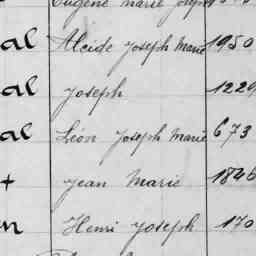 Eugène Marie Joseph
al Alcide Joseph Marie 1950
al Joseph 1229
al Léon Joseph Marie 673
t Jean Marie 1846
n Henri Joseph 170